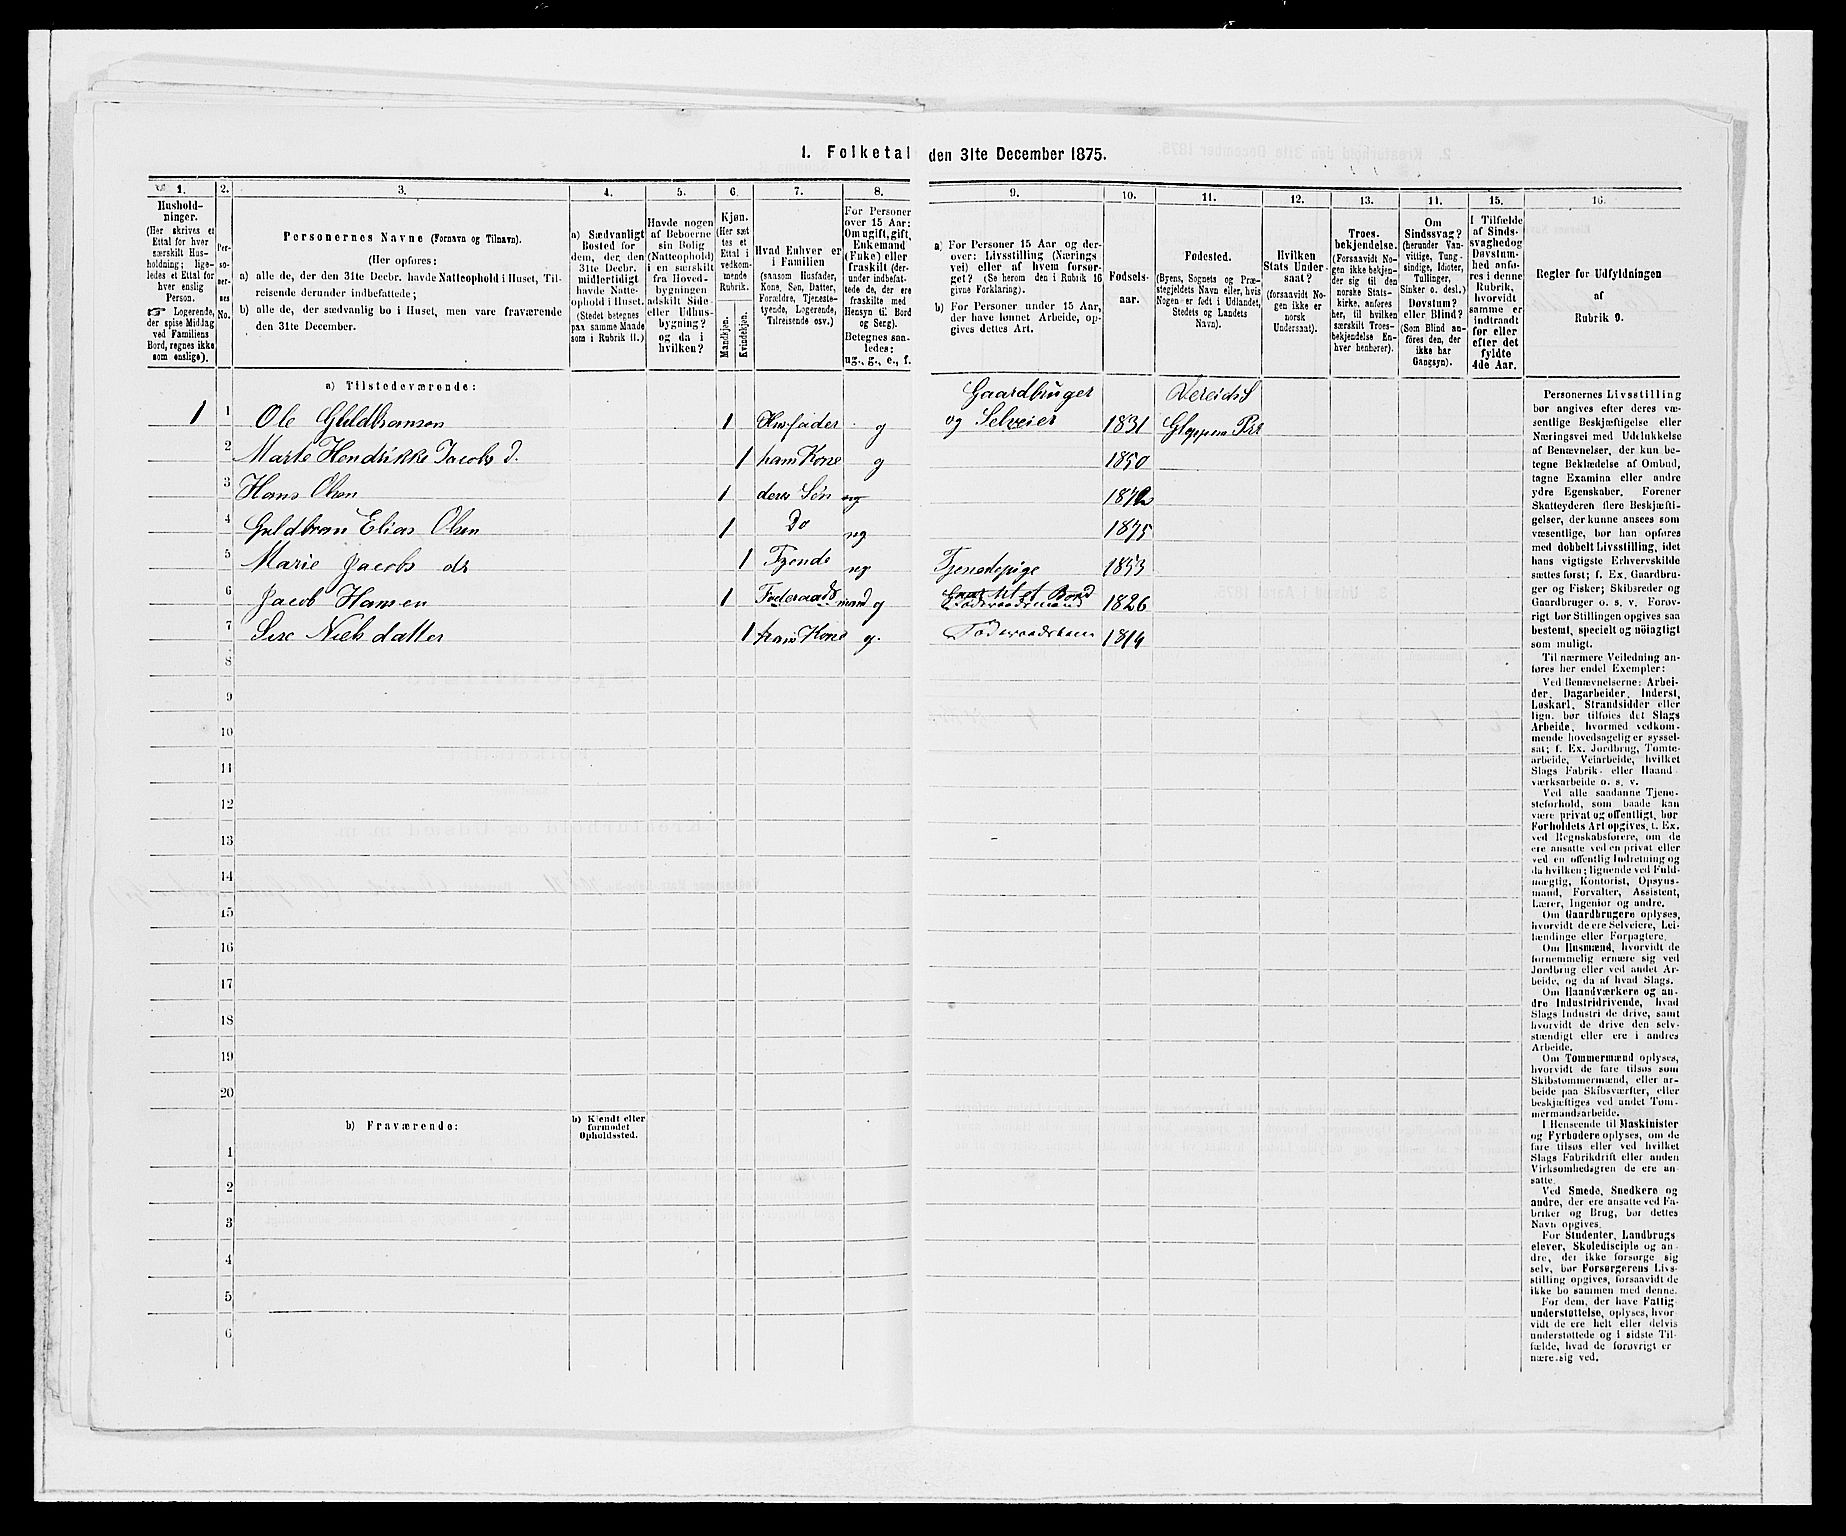 1. Folketal den 31te December 1875.
1. 2. 3. 4. 5. 6. 7. 8. 9. 10. 11. 12. 13. 14. 15. 16.
Hushold-
ninger.
(Her skrives et
Ettal for hver
særskilt Hus-
holdning; lige-
ledes et Ettal for
hver enslig
Person.
☞ Logerende,
der spise Middag
ved Familiens
Bord, regnes ikke
som enslige).
Per-
so-
ner-
nes
No.
Personernes Navne (Fornavn og Tilnavn).
(Her opføres:
a) alle de, der den 31te Decbr. havde Natteophold i Huset, Til-
reisende derunder indbefattede;
b) alle de, der sædvanlig bo i Huset, men vare fraværende
den 31te December.
a) Sædvanligt
Bosted for
dem, der den
31te Decbr.
midlertidigt
havde Natte-
ophold i Huset.
(Stedet betegnes
paa samme Maade
som i Rubrik 11.)
Havde nogen
af Beboerne
sin Bolig
(Natteophold)
i en særskilt
fra Hoved-
bygningen
adskilt Side-
eller Udhus-
bygning?
og da i
hvilken?
Kjøn.
(Her sæt-
tes et
Ettal i
vedkom-
mende
Rubrik.
Mandkjøn.
Kvindekjøn.
Hvad Enhver er
i Familien
(saasom Husfader,
Kone, Søn, Datter,
Forældre, Tjeneste-
tyende, Logerende,
Tilreisende osv.)
For Personer
over 15 Aar:
Om ugift, gift,
Enkemand
(Enke) eller
fraskilt (der-
under indbefat-
tede de, der ere
fraskilte med
Hensyn til Bord
og Seng).
Betegnes saa-
ledes:
ug., g., e., f.
a) For Personer 15 Aar og der-
over: Livsstilling (Nærings
vei) eller af hvem forsør-
get? (Se herom den i Rubrik 16
givne Forklaring).
b) For Personer under 15 Aar,
der have lønnet Arbeide, op-
gives dettes Art.
Fødsels-
aar.
Fødested.
(Byens, Sognets og Præ-
stegjeldets Navn eller, hvis
Nogen er født i Udlandet,
Stedets og Landets
Navn).
Hvilken
Stats Under-
saat?
(forsaavidt No-
gen ikke er
norsk
Undersaat).
Troes-
bekjendelse.
(Forsaavidt No-
gen ikke bekjen-
der sig til den
norske Stats-
kirke, anføres
her, til hvilken
særskilt Troes-
bekjendelse En-
hver henhører).
Om
Sindssvag?
(herunder Van-
vittige, Tung-
sindige, Idioter,
Tullinger,
Sinker o. desl.)
Døvstum?
eller Blind?
(Som Blind an-
føres den, der
ikke har
Gangsyn).
I Tilfælde
af Sinds-
svaghed og
Døvstum-
hed anfø-
res i denne
Rubrik,
hvorvidt
samme er
indtraadt
før eller
efter det
fyldte
4de Aar.
Regler for Udfyldningen
af
Rubrik 9.
a) Tilstedeværende:
Gaardbruger
1 1 Ole Guldbransen 1 Husfader g og Selveier 1831 Gloppen Pr
2 Marte Hendrikke Jacobs d. 1 hans Kone g 1850
3 Hans Olsen 1 deres Søn ug 1872
4 Guldbran Elias Olsen 1 Do ug 1875
5 Marie Jacobs dr 1 Tjende ug Tjenestepige 1853
6 Jacob Hansen 1 Føderaads mand g Føderaadsmand 1826
7 Sire Niels datter 1 hans Kone g. Føderaadskone 1814
8
9
10
11
12
13
14
15
16
17
18
19
20
b) Fraværende:
b) Kjendt eller
formodet
Opholdssted.
1
2
3
4
5
6
Personernes Livsstilling
bør angives efter deres væ-
sentlige Beskjæftigelse eller
Næringsvei med Udelukkelse
af Benævnelser, der kun be-
tegne Beklædelse af Ombud,
tagne Examina eller andre
ydre Egenskaber. Forener
Skatteyderen flere Beskjæfti-
gelser, der kunne ansees som
væsentlige, bør han opføres
med dobbelt Livsstilling, idet
hans vigtigste Erhvervskilde
sættes først; f. Ex. Gaardbru-
ger og Fisker; Skibsreder og
Gaardbruger o. s. v. Forøv-
rigt bør Stillingen opgives saa
bestemt, specielt og nøiagtigt
som muligt.
Til nærmere Veiledning an-
føres her endel Exempler:
Ved Benævnelserne: Arbei-
der, Dagarbeider, Inderst,
Løskarl, Strandsidder eller
lign. bør tilføies det Slags
Arbeide, hvormed vedkom-
mende hovedsagelig er syssel-
sat; f. Ex. Jordbrug, Tomte-
arbeide, Veiarbeide, hvilket
Slags Fabrik- eller Haand
værksarbeide o. s. v.
Ved alle saadanne Tjene-
steforhold, som baade kan
være privat og offentligt, bør
Forholdets Art opgives, t. Ex.
ved Regnskabsførere, om de
ere ansatte ved en privat eller
ved en offentlig Indretning og
da hvilken; lignende ved Fuld-
mægtig, Kontorist, Opsyns-
mand, Forvalter, Assistent,
Lærer, Ingeniør og andre.
Om Gaardbrugere oplyses,
hvorvidt de ere Selveiere, Lei-
lændinge eller Forpagtere.
Om Husmænd, hvorvidt de
fornemmelig ernære sig ved
Jordbrug eller ved andet Ar-
beide, og da af hvad Slags.
Om Haandværkere og an-
dre Industridrivende, hvad
Slags Industri de drive, samt
hvorvidt de drive den selv-
stændigt eller ere i andres
Arbeide.
Om Tømmermænd oplyses,
hvorvidt de fare tilsøs som
Skibstømmermænd, eller ar-
beide paa Skibsværfter, eller
beskjæftiges ved andet Tøm-
mermandsarbeide.
I Henseende til Maskinister
og Fyrbødere oplyses, om de
fare tilsøs eller ved hvilket
Slags Fabrikdrift eller anden
Virksomhedsgren de ere an-
satte.
Ved Smede, Snedkere og
andre, der ere ansatte ved Fa-
briker og Brug, bør dettes
Navn opgives.
For Studenter, Landbrugs
elever, Skoledisciple og an-
dre, der ikke forsørge sig
selv, bør Forsørgerens Livs-
stilling opgives, forsaavidt de
ikke bo sammen med denne.
For dem, der have Fattig
understøttelse, oplyses, hvor-
vidt de ere helt eller delvis
understøttede og i sidste Til-
fælde, hvad de forøvrigt er
nære sig ved.